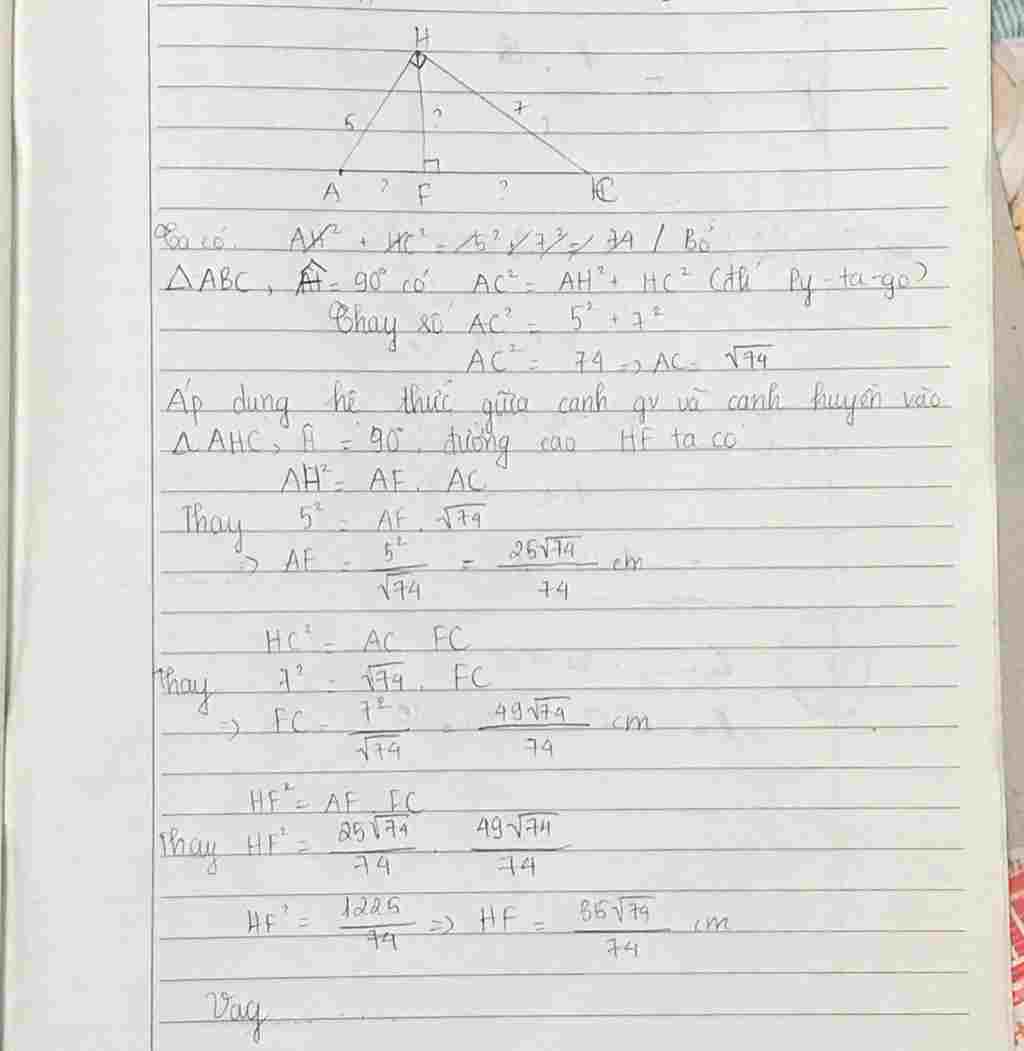 H
5 ? 7
A ? F ? C
Ta có AH² + HC² = 5² + 7² = 74 / Bỏ
△ABC, Ĥ = 90° có AC² = AH² + HC² (đlí Py-ta-go)
Thay số AC² = 5² + 7²
AC² = 74 => AC = √74
Áp dụng hệ thức giữa cạnh gv và cạnh huyền vào
△AHC, Ĥ = 90°, đường cao HF ta có
AH² = AF . AC
Thay 5² = AF . √74
=> AF = 5²/√74 = 25√74/74 cm
HC² = AC FC
Thay 7² = √74 . FC
=> FC = 7²/√74 = 49√74/74 cm
HF² = AF . FC
Thay HF² = 25√74/74 . 49√74/74
HF² = 1225/74 => HF = 35√74/74 cm
Vậy ........